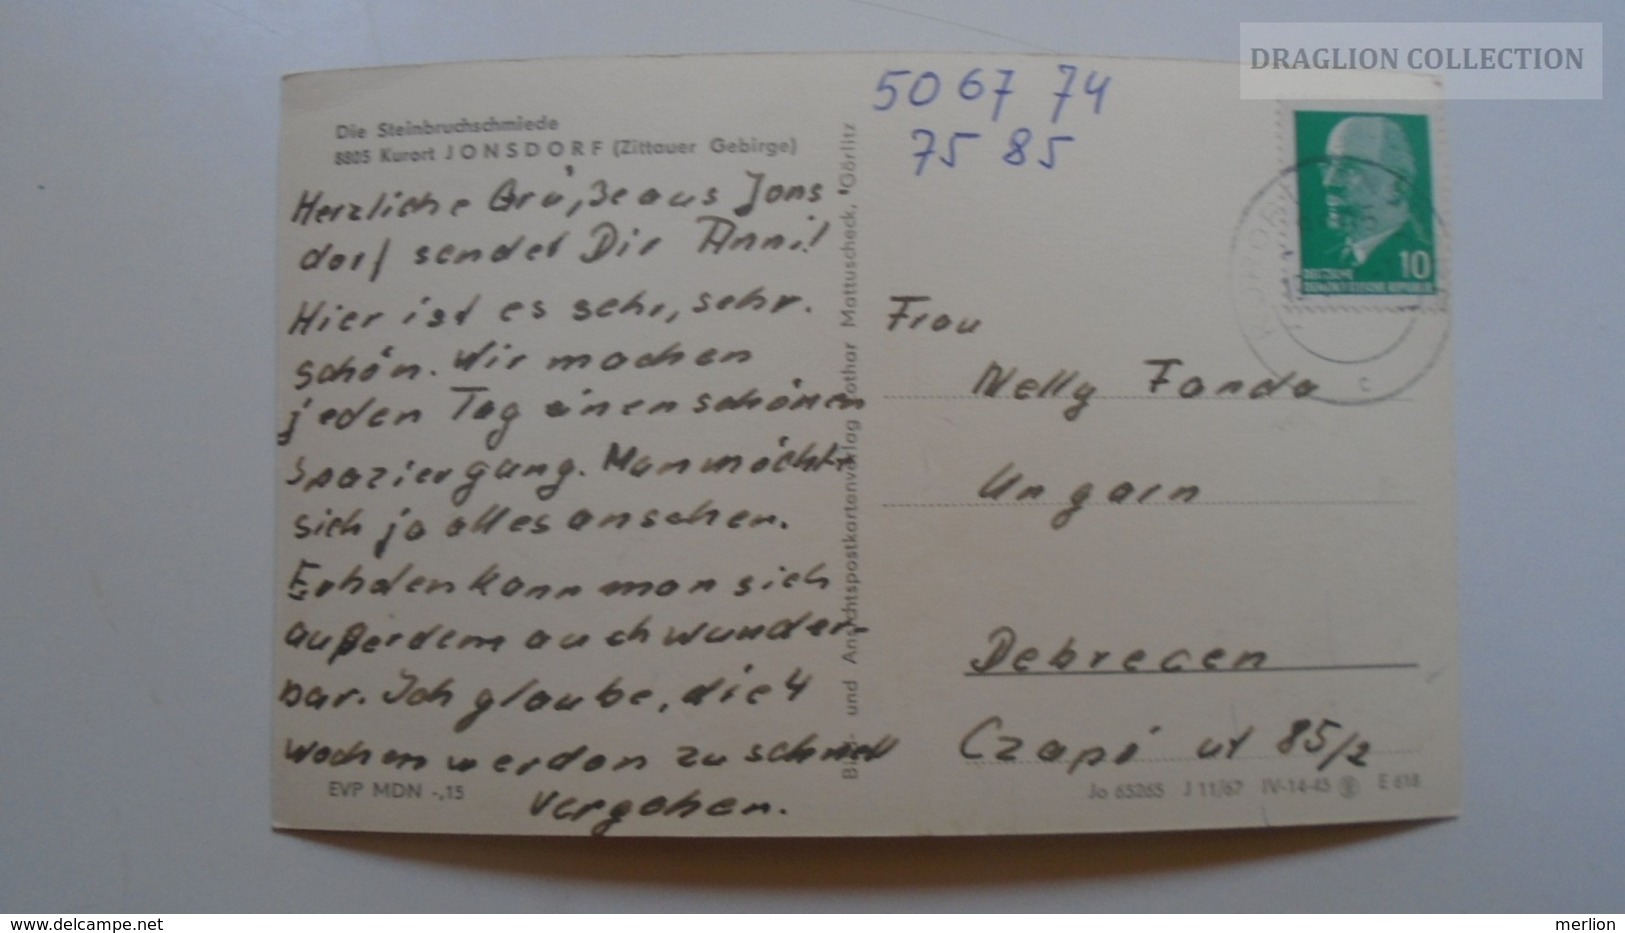 DRAGLION COLLECTION
50 67 74
75 85
Die Steinbruchschmiede
8805 Kurort JONSDORF (Zittauer Gebirge)
Herzliche Grüße aus Jons
dorf sendet Dir Anni!
Hier ist es sehr, sehr.
schön. Wir machen
jeden Tag einen schönen
Spaziergang. Man möchte
sich ja alles ansehen.
Erholen kann man sich
außerdem auch wunder-
bar. Ich glaube, die 4
Wochen werden zu schnell
vergehen.
EVP MDN -,15
und Ansichtspostkartenverlag Lothar Mattuscheck, Görlitz
10
DEUTSCHE
DEMOKRATISCHE REPUBLIK
C
Frau
Nelly Fonda
Ungarn
Debrecen
Czapó ut 85/2
Jo 65265 J 11/67 IV-14-45 E 618
www.delcampe.net
merlion